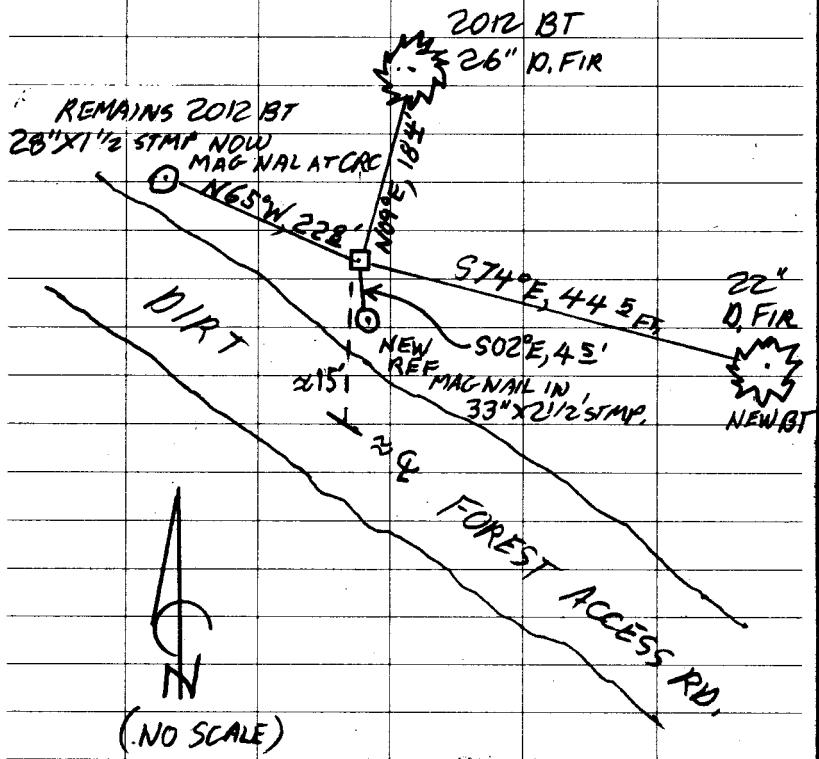 2012 BT
26" D. FIR
REMAINS 2012 BT
28"X1 1/2 STMP NOW
MAG NAL AT CRC
N65°W, 22 8'
N09°E, 18 4'
S74°E, 44 5 FT.
22"
D. FIR
NEW BT
DIRT
NEW
REF
S02°E, 4 5'
MAG NAIL IN
33"X2 1/2' STMP.
≈15'
≈ ℄
FOREST ACCESS RD.
N
(NO SCALE)